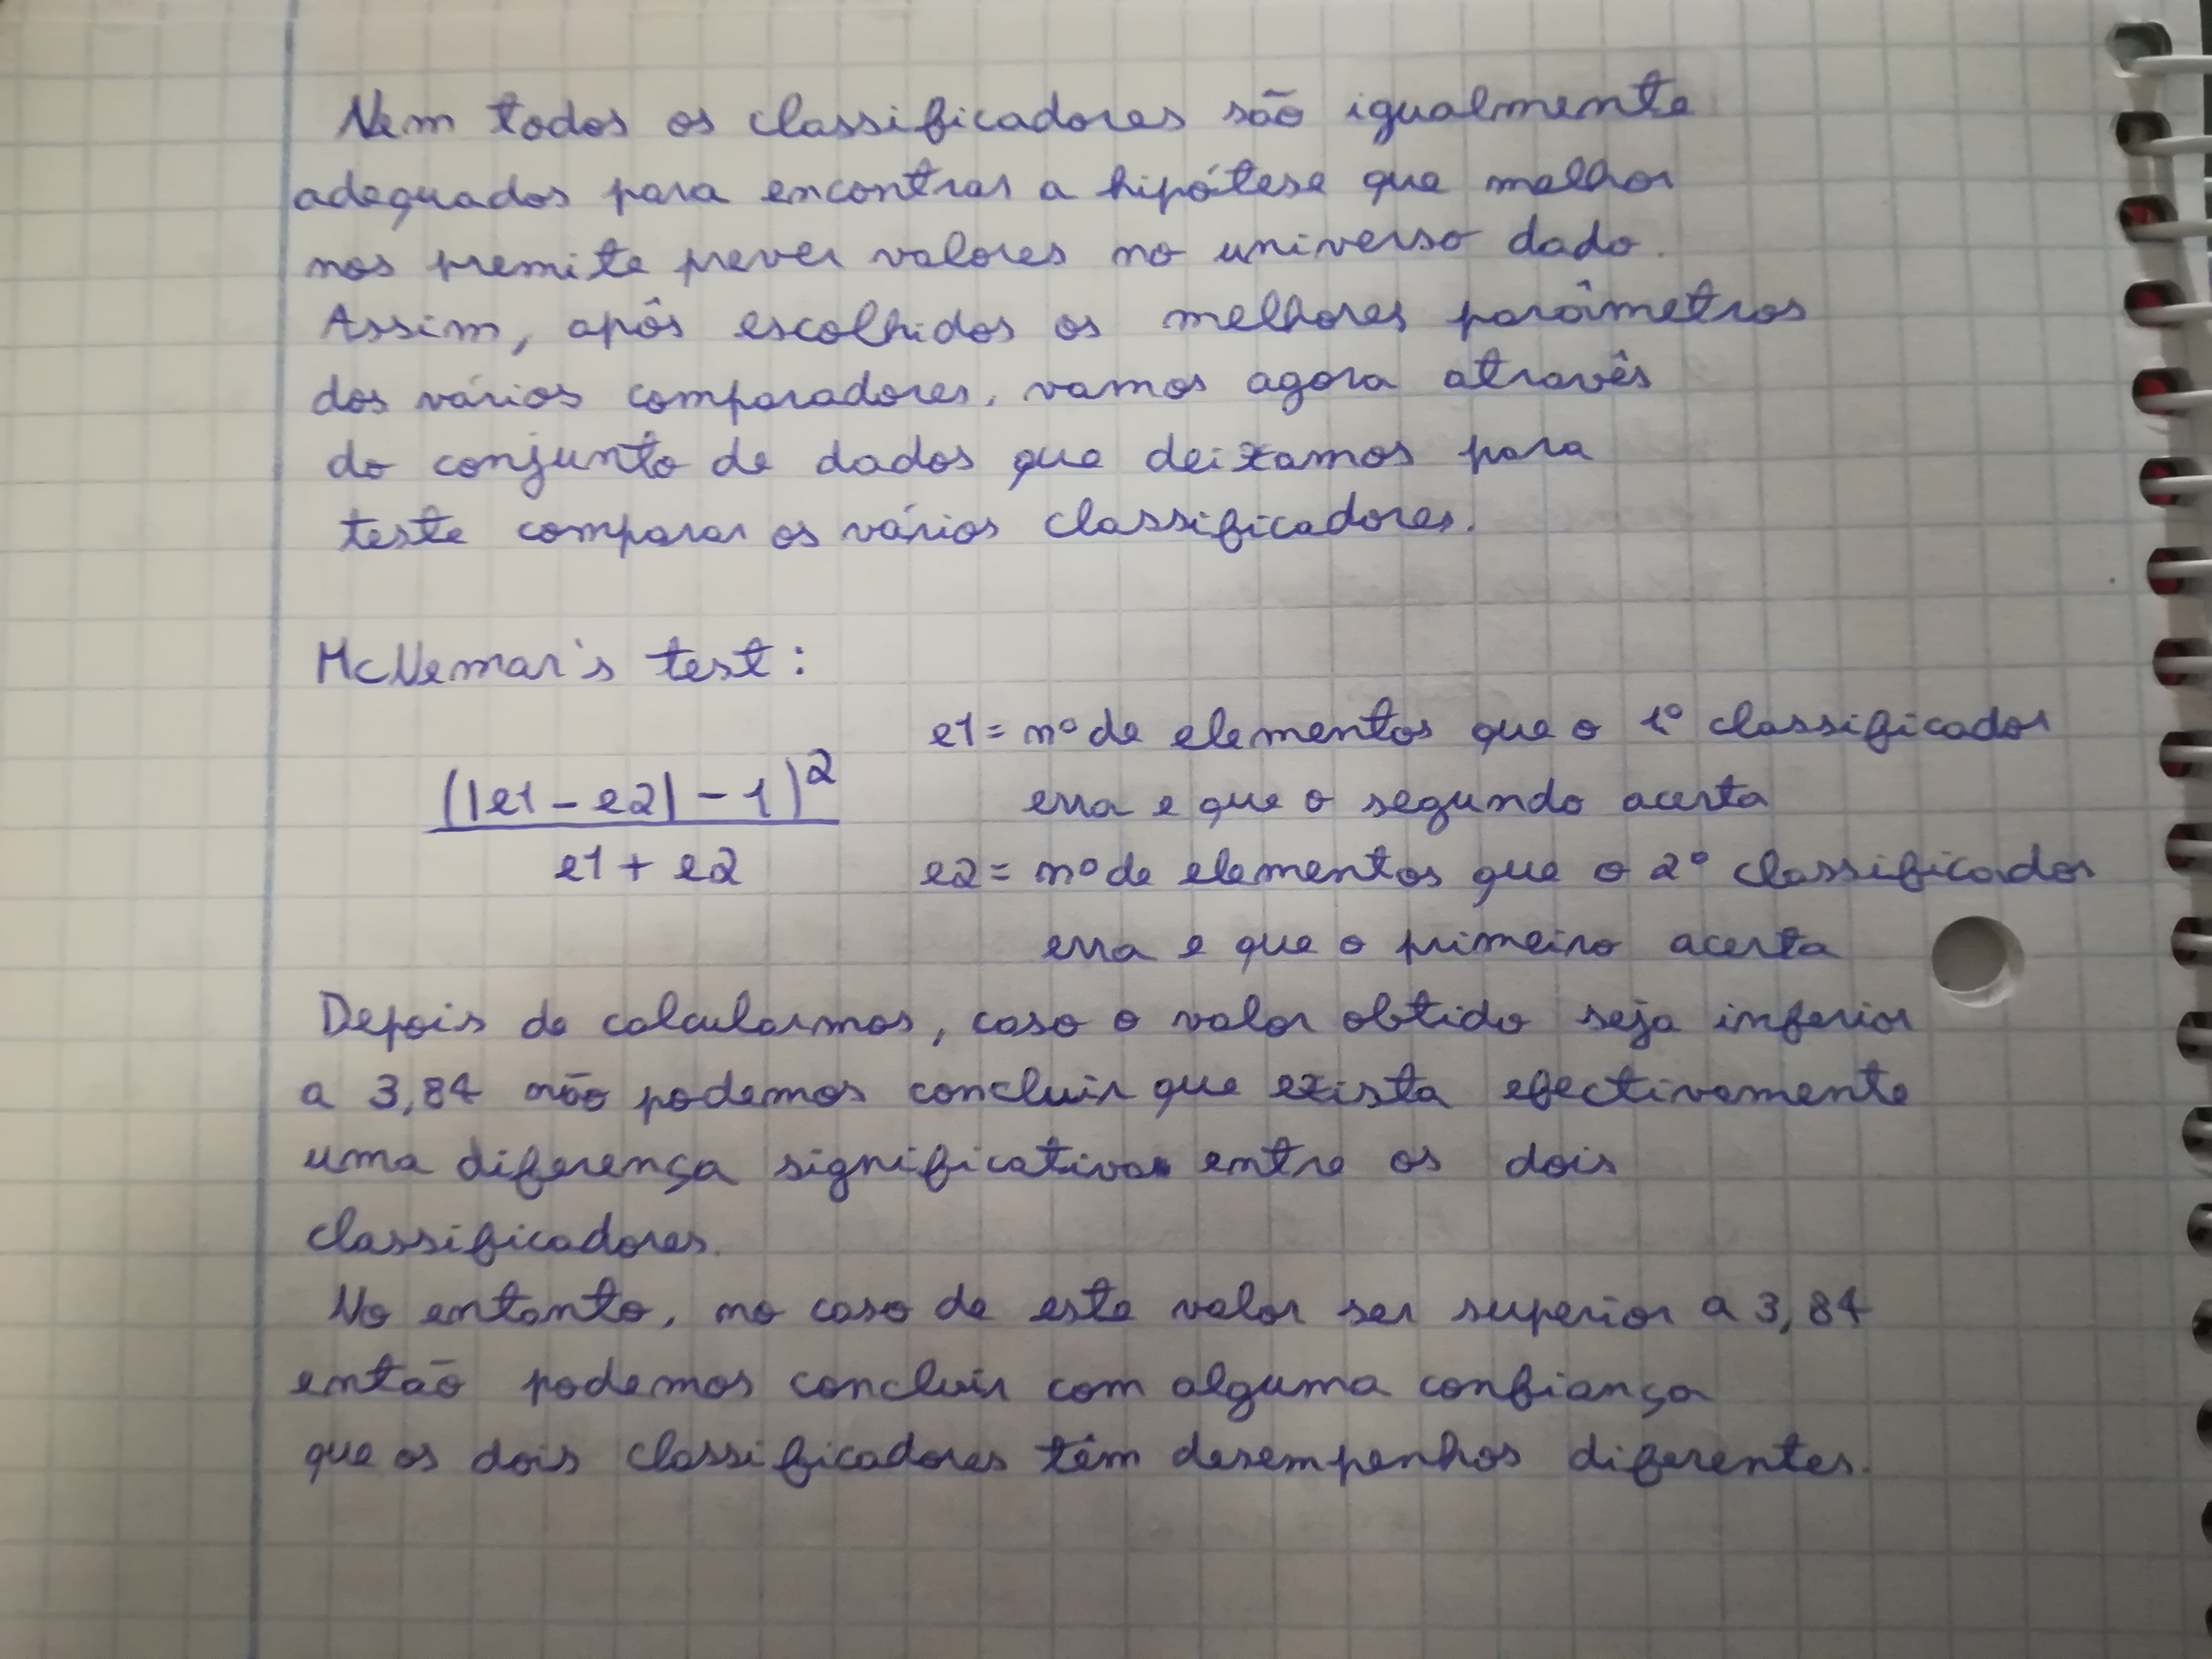 Nem todos os classificadores são igualmente
adequados para encontrar a hipótese que melhor
nos premite prever valores no universo dado.
Assim, apôs escolhidos os melhores parâmetros
dos vários comparadores, vamos agora atravês
do conjunto de dados que deixamos para
teste comparar os vários classificadores.
McNemar's test:
(|e1 - e2| - 1)²
e1 + e2
e1 = nº de elementos que o 1º classificador
erra e que o segundo acerta
e2 = nº de elementos que o 2º classificador
erra e que o primeiro acerta
Depois de calcularmos, caso o valor obtido seja inferior
a 3,84 não podemos concluir que exista efectivamente
uma diferença significativa entre os dois
classificadores.
No entanto, no caso de este valor ser superior a 3,84
então podemos concluir com alguma confiança
que os dois classificadores têm desempenhos diferentes.